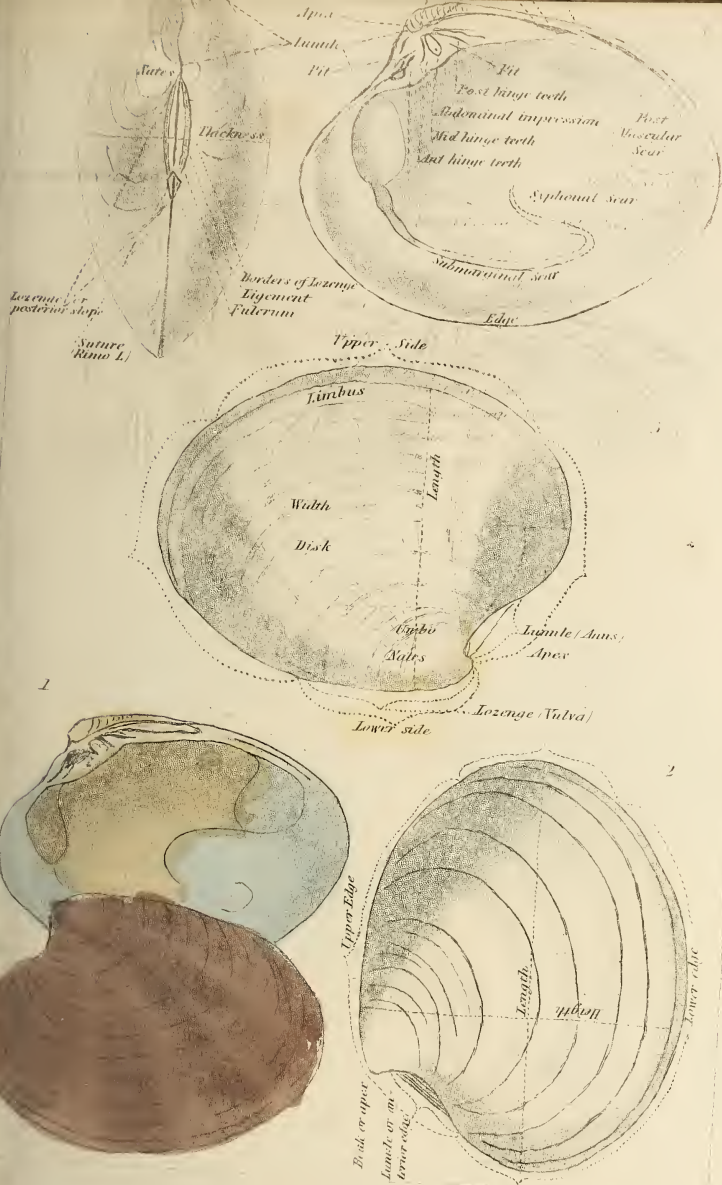 Apex
Lunule
Pit
Nates
Thickness
Lozenge or
posterior slope
Borders of Lozenge
Ligement
Fulcrum
(Suture
(Rima L.)
Pit
Post hinge teeth
Abdominal impression
Mid hinge teeth
Ant hinge teeth
Post
Muscular
Scar
Syphonal scar
Submarginal Scar
Edge
Upper Side
Limbus
Length
Width
Disk
Umbo
Nates
Lunule (Anus)
Apex
Lozenge (Vulva)
Lower side
1
2
Upper Edge
Length
Heigth
Lower edge
Beak or apex
Lunule or an-
terior edge